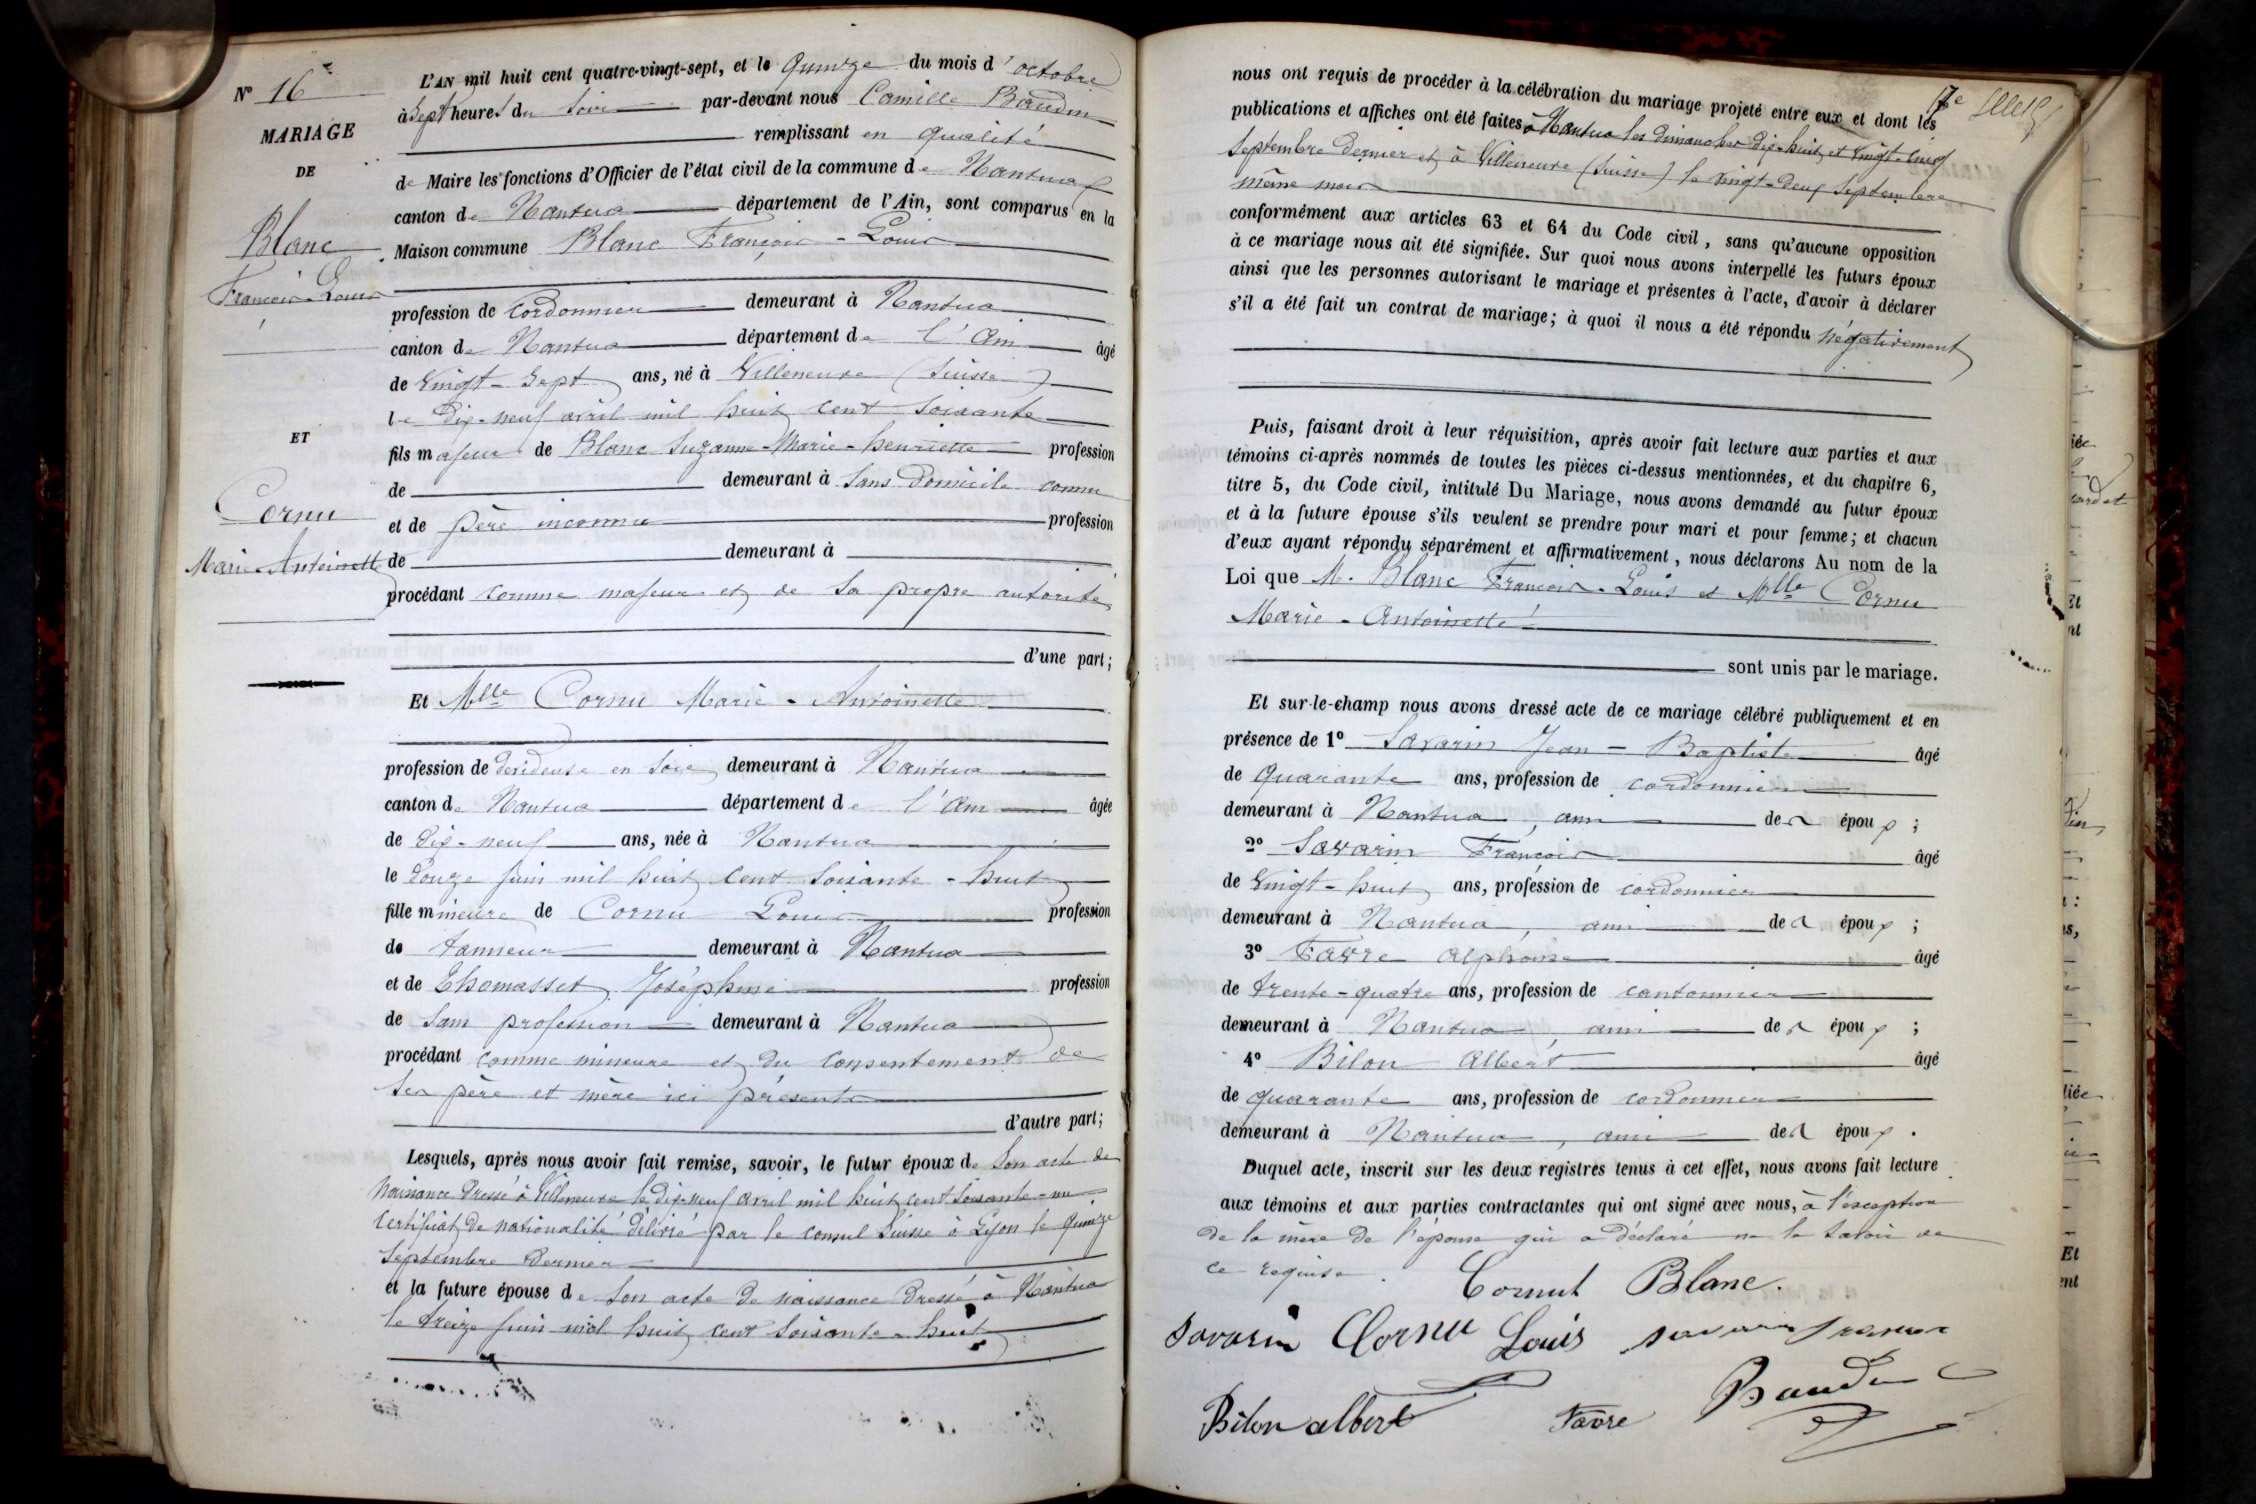 N° 16
MARIAGE
DE
Blanc
François-Louis
ET
Cornu
Marie-Antoinette
L'AN mil huit cent quatre-vingt-sept, et le Quinze du mois d'octobre
à Sept heures du soir par-devant nous Camille Baudin
remplissant en qualité
de Maire les fonctions d'Officier de l'état civil de la commune de Nantua
canton de Nantua département de l'Ain, sont comparus en la
Maison commune Blanc François-Louis
profession de Cordonnier demeurant à Nantua
canton de Nantua département de l'Ain âgé
de Vingt-Sept ans, né à Villeneuve (Suisse)
le dix-neuf avril mil huit cent soixante
fils majeur de Blanc Suzanne-Marie-henriette profession
de demeurant à sans domicile connu
et de père inconnu profession
de demeurant à
procédant comme majeur et de sa propre autorité
d'une part;
Et Mlle Cornu Marie-Antoinette
profession de devideuse en soie demeurant à Nantua
canton de Nantua département de l'Ain âgée
de dix-neuf ans, née à Nantua
le douze juin mil huit cent soixante-huit
fille mineure de Cornu Louis profession
de tanneur demeurant à Nantua
et de Thomasset Joséphine profession
de sans profession demeurant à Nantua
procédant comme mineure et du consentement de
ses père et mère ici présents
d'autre part;
Lesquels, après nous avoir fait remise, savoir, le futur époux de son acte de
Naissance dressé à Villeneuve le dix-neuf avril mil huit cent soixante-un
certificat de nationalité délivré par le consul Suisse à Lyon le quinze
septembre dernier
et la future épouse de son acte de naissance dressé à Nantua
le treize juin mil huit cent soixante-huit
nous ont requis de procéder à la célébration du mariage projeté entre eux et dont les
publications et affiches ont été faites à Nantua les dimanches dix-huit et vingt-cinq
septembre dernier et à Villeneuve (Suisse) le vingt-deux septembre
même mois
conformément aux articles 63 et 64 du Code civil, sans qu'aucune opposition
à ce mariage nous ait été signifiée. Sur quoi nous avons interpellé les futurs époux
ainsi que les personnes autorisant le mariage et présentes à l'acte, d'avoir à déclarer
s'il a été fait un contrat de mariage; à quoi il nous a été répondu négativement
Puis, faisant droit à leur réquisition, après avoir fait lecture aux parties et aux
témoins ci-après nommés de toutes les pièces ci-dessus mentionnées, et du chapitre 6,
titre 5, du Code civil, intitulé Du Mariage, nous avons demandé au futur époux
et à la future épouse s'ils veulent se prendre pour mari et pour femme; et chacun
d'eux ayant répondu séparément et affirmativement, nous déclarons Au nom de la
Loi que M. Blanc François-Louis et Mlle Cornu
Marie-Antoinette
sont unis par le mariage.
Et sur-le-champ nous avons dressé acte de ce mariage célébré publiquement et en
présence de 1° Savarin Jean-Baptiste âgé
de quarante ans, profession de cordonnier
demeurant à Nantua, ami des époux;
2° Savarin François âgé
de Vingt-huit ans, profession de cordonnier
demeurant à Nantua, ami des époux;
3° Favre Alphonse âgé
de trente-quatre ans, profession de cantonnier
demeurant à Nantua, ami des époux;
4° Bilon Albert âgé
de quarante ans, profession de cordonnier
demeurant à Nantua, ami des époux.
Duquel acte, inscrit sur les deux registres tenus à cet effet, nous avons fait lecture
aux témoins et aux parties contractantes qui ont signé avec nous, à l'exception
de la mère de l'épouse qui a déclaré ne le savoir de
ce requise.
Cornut Blanc.
Savarin Cornu Louis savarin françois
Bilon albert Favre Baudin